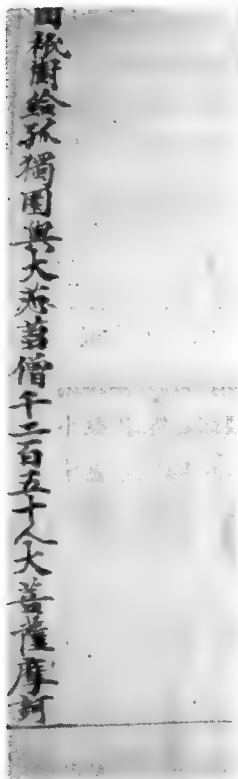 祇樹給孤獨園與大苾蒭僧千二百五十人大菩薩摩訶